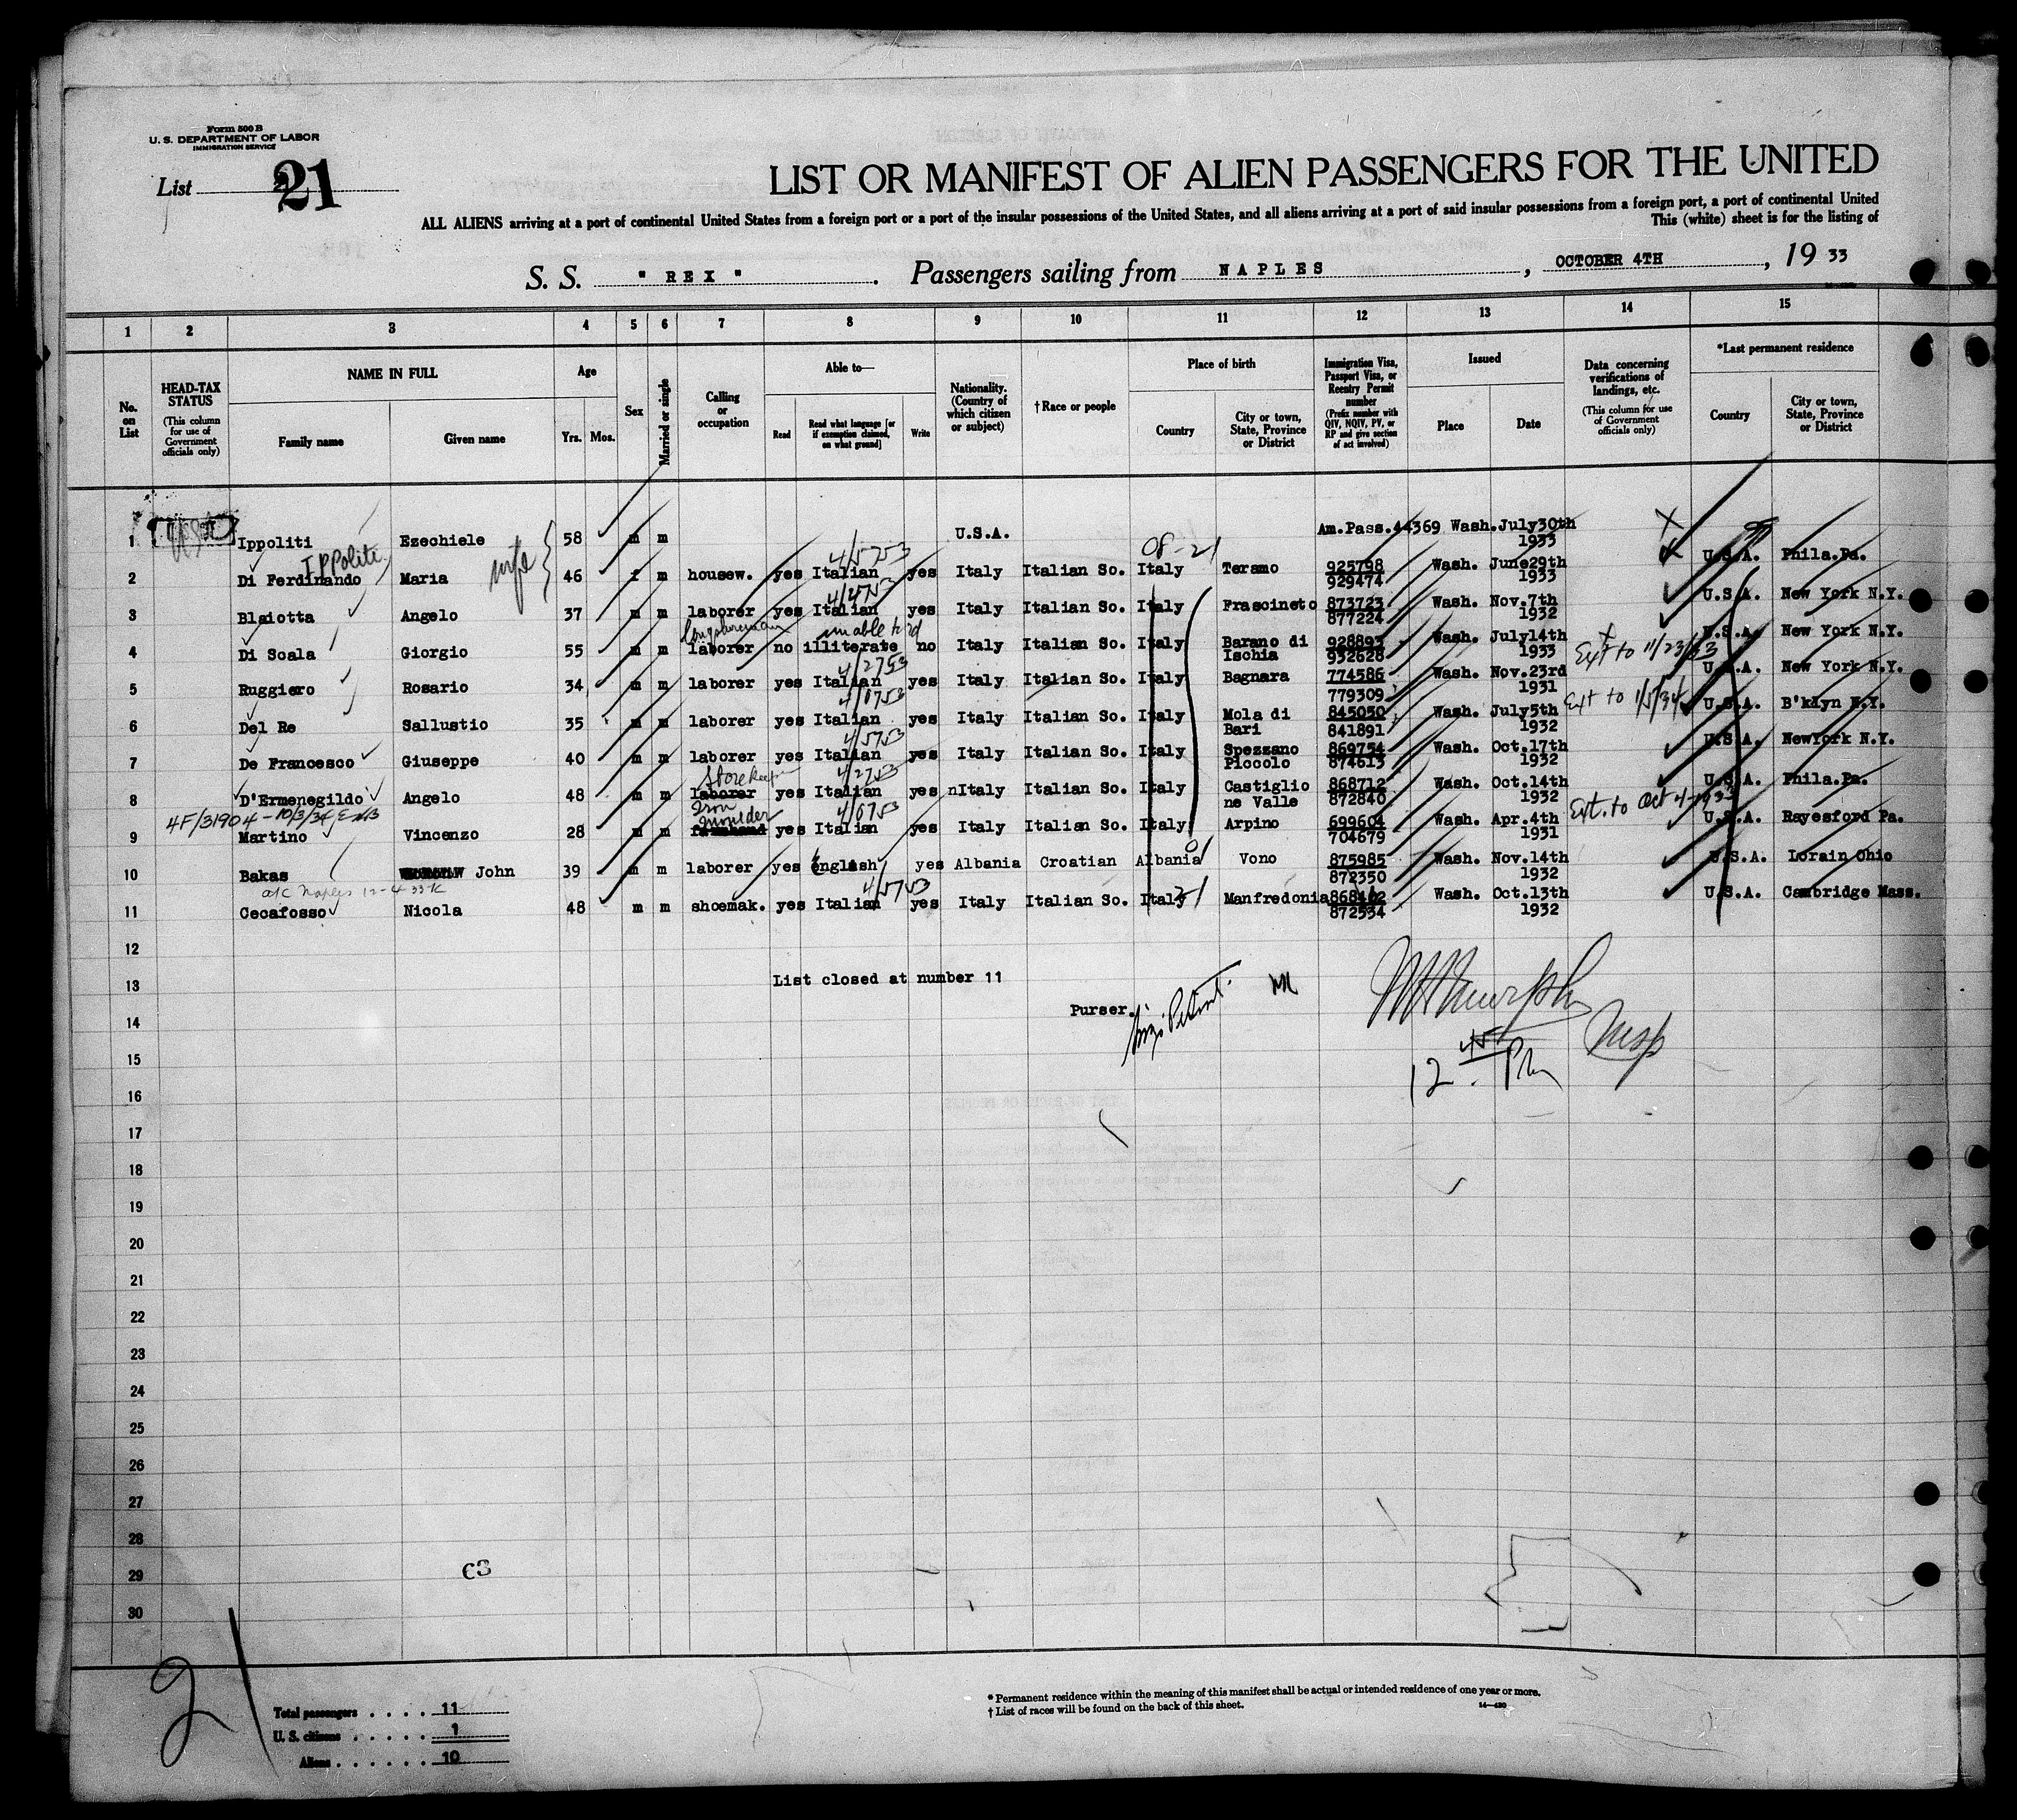 Form 500 B
U. S. DEPARTMENT OF LABOR
IMMIGRATION SERVICE
List 21
LIST OR MANIFEST OF ALIEN PASSENGERS FOR THE UNITED
ALL ALIENS arriving at a port of continental United States from a foreign port or a port of the insular possessions of the United States, and all aliens arriving at a port of said insular possessions from a foreign port, a port of continental United
This (white) sheet is for the listing of
S. S. " REX " . Passengers sailing from NAPLES , OCTOBER 4TH , 19 33
1 2 3 4 5 6 7 8 9 10 11 12 13 14 15
No. on List
HEAD-TAX STATUS (This column for use of Government officials only)
NAME IN FULL Family name Given name
Age Yrs. Mos.
Sex
Married or single
Calling or occupation
Able to— Read Read what language [or if exemption claimed, on what ground] Write
Nationality. (Country of which citizen or subject)
†Race or people
Place of birth Country City or town, State, Province or District
Immigration Visa, Passport Visa, or Reentry Permit number (Prefix number with QIV, NQIV, PV, or RP and give section of act involved)
Issued Place Date
Data concerning verifications of landings, etc. (This column for use of Government officials only)
*Last permanent residence Country City or town, State, Province or District
1 USA Ippoliti Ezechiele 58 m m U.S.A. Am.Pass.44369 Wash. July30th 1933
Ippoliti wife 4/5753 08-21 U.S.A. Phila.Pa.
2 Di Ferdinando Maria 46 f m housew. yes Italian yes Italy Italian So. Italy Teramo 925798 929474 Wash. June29th 1933
4/2753 U.S.A. New York N.Y.
3 Blaiotta Angelo 37 m m laborer yes Italian yes Italy Italian So. Italy Frascineto 873723 877224 Wash. Nov.7th 1932
longshoreman unable to rd U.S.A. New York N.Y.
4 Di Scala Giorgio 55 m m laborer no illiterate no Italy Italian So. Italy Barano di Ischia 928893 932628 Wash. July14th 1933 Ext to 11/23/33
4/2753 U.S.A. New York N.Y.
5 Ruggiero Rosario 34 m m laborer yes Italian yes Italy Italian So. Italy Bagnara 774586 779309 Wash. Nov.23rd 1931 Ext to 1/5/34
4/0753 U.S.A. B'klyn N.Y.
6 Del Re Sallustio 35 m m laborer yes Italian yes Italy Italian So. Italy Mola di Bari 845050 841891 Wash. July5th 1932
4/5753 U.S.A. NewYork N.Y.
7 De Francesco Giuseppe 40 m m laborer yes Italian yes Italy Italian So. Italy Spezzano Piccolo 869754 874613 Wash. Oct.17th 1932
Store keeper 4/2753 U.S.A. Phila.Pa.
8 D'Ermenegildo Angelo 48 m m laborer yes Italian yes nItaly Italian So. Italy Castiglio ne Valle 868712 872840 Wash. Oct.14th 1932 Ext. to Oct 4-1933
4F/31904-10/3/34 Iron moulder 4/0753 U.S.A. Rayesford Pa.
9 Martino Vincenzo 28 m m yes Italian yes Italy Italian So. Italy Arpino 699604 704679 Wash. Apr.4th 1931
U.S.A. Lorain Ohio
10 Bakas John 39 m m laborer yes english yes Albania Croatian Albania Vono 875985 872350 Wash. Nov.14th 1932
a/c Naples 12-4-33-K 4/5753 U.S.A. Cambridge Mass.
11 Cecafosso Nicola 48 m m shoemak. yes Italian yes Italy Italian So. Italy Manfredonia 868402 872534 Wash. Oct.13th 1932
12
List closed at number 11
13
Purser.
14
15
12 45 Pm
16
17
18
19
20
21
22
23
24
25
26
27
28
29 C3
30
21
Total passengers . . . . 11
U. S. citizens . . . . . 1
Aliens . . . . . . 10
* Permanent residence within the meaning of this manifest shall be actual or intended residence of one year or more.
† List of races will be found on the back of this sheet. 14—430